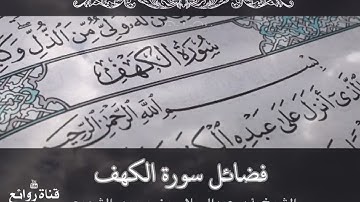 له ولي من الذل وك
سورة الكهف
بسم الله الرحمن الرحي
أنزل على عبده الك
فضائل سورة الكهف
قناة روائع